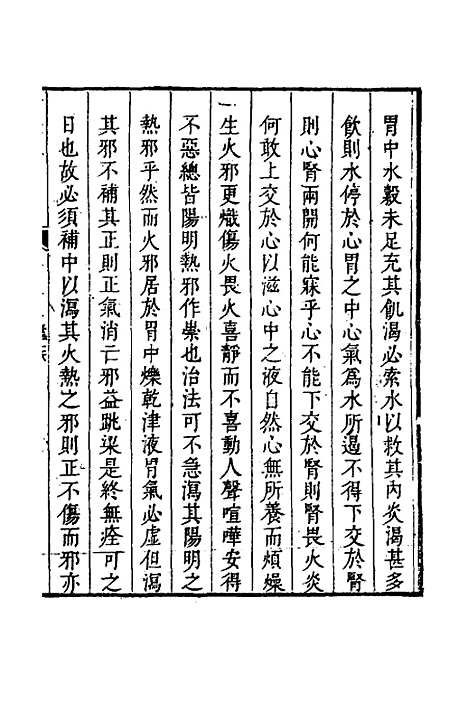 胃中水穀未足充其飢渴必索水以救其内炎渴甚多
飲則水停於心胃之中心氣爲水所遏不得下交於腎
則心腎兩開何能寐乎心不能下交於腎則腎畏火炎
何敢上交於心以滋心中之液自然心無所養而煩燥
生火邪更熾傷火畏火喜靜而不喜動人聲喧嘩安得
不惡總皆陽明熱邪作祟也治法可不急瀉其陽明之
熱邪乎然而火邪居於胃中爍乾津液胃氣必虛但瀉
其邪不補其正則正氣消亡邪益跳梁是終無痊可之
日也故必須補中以瀉其火熱之邪則正不傷而邪亦